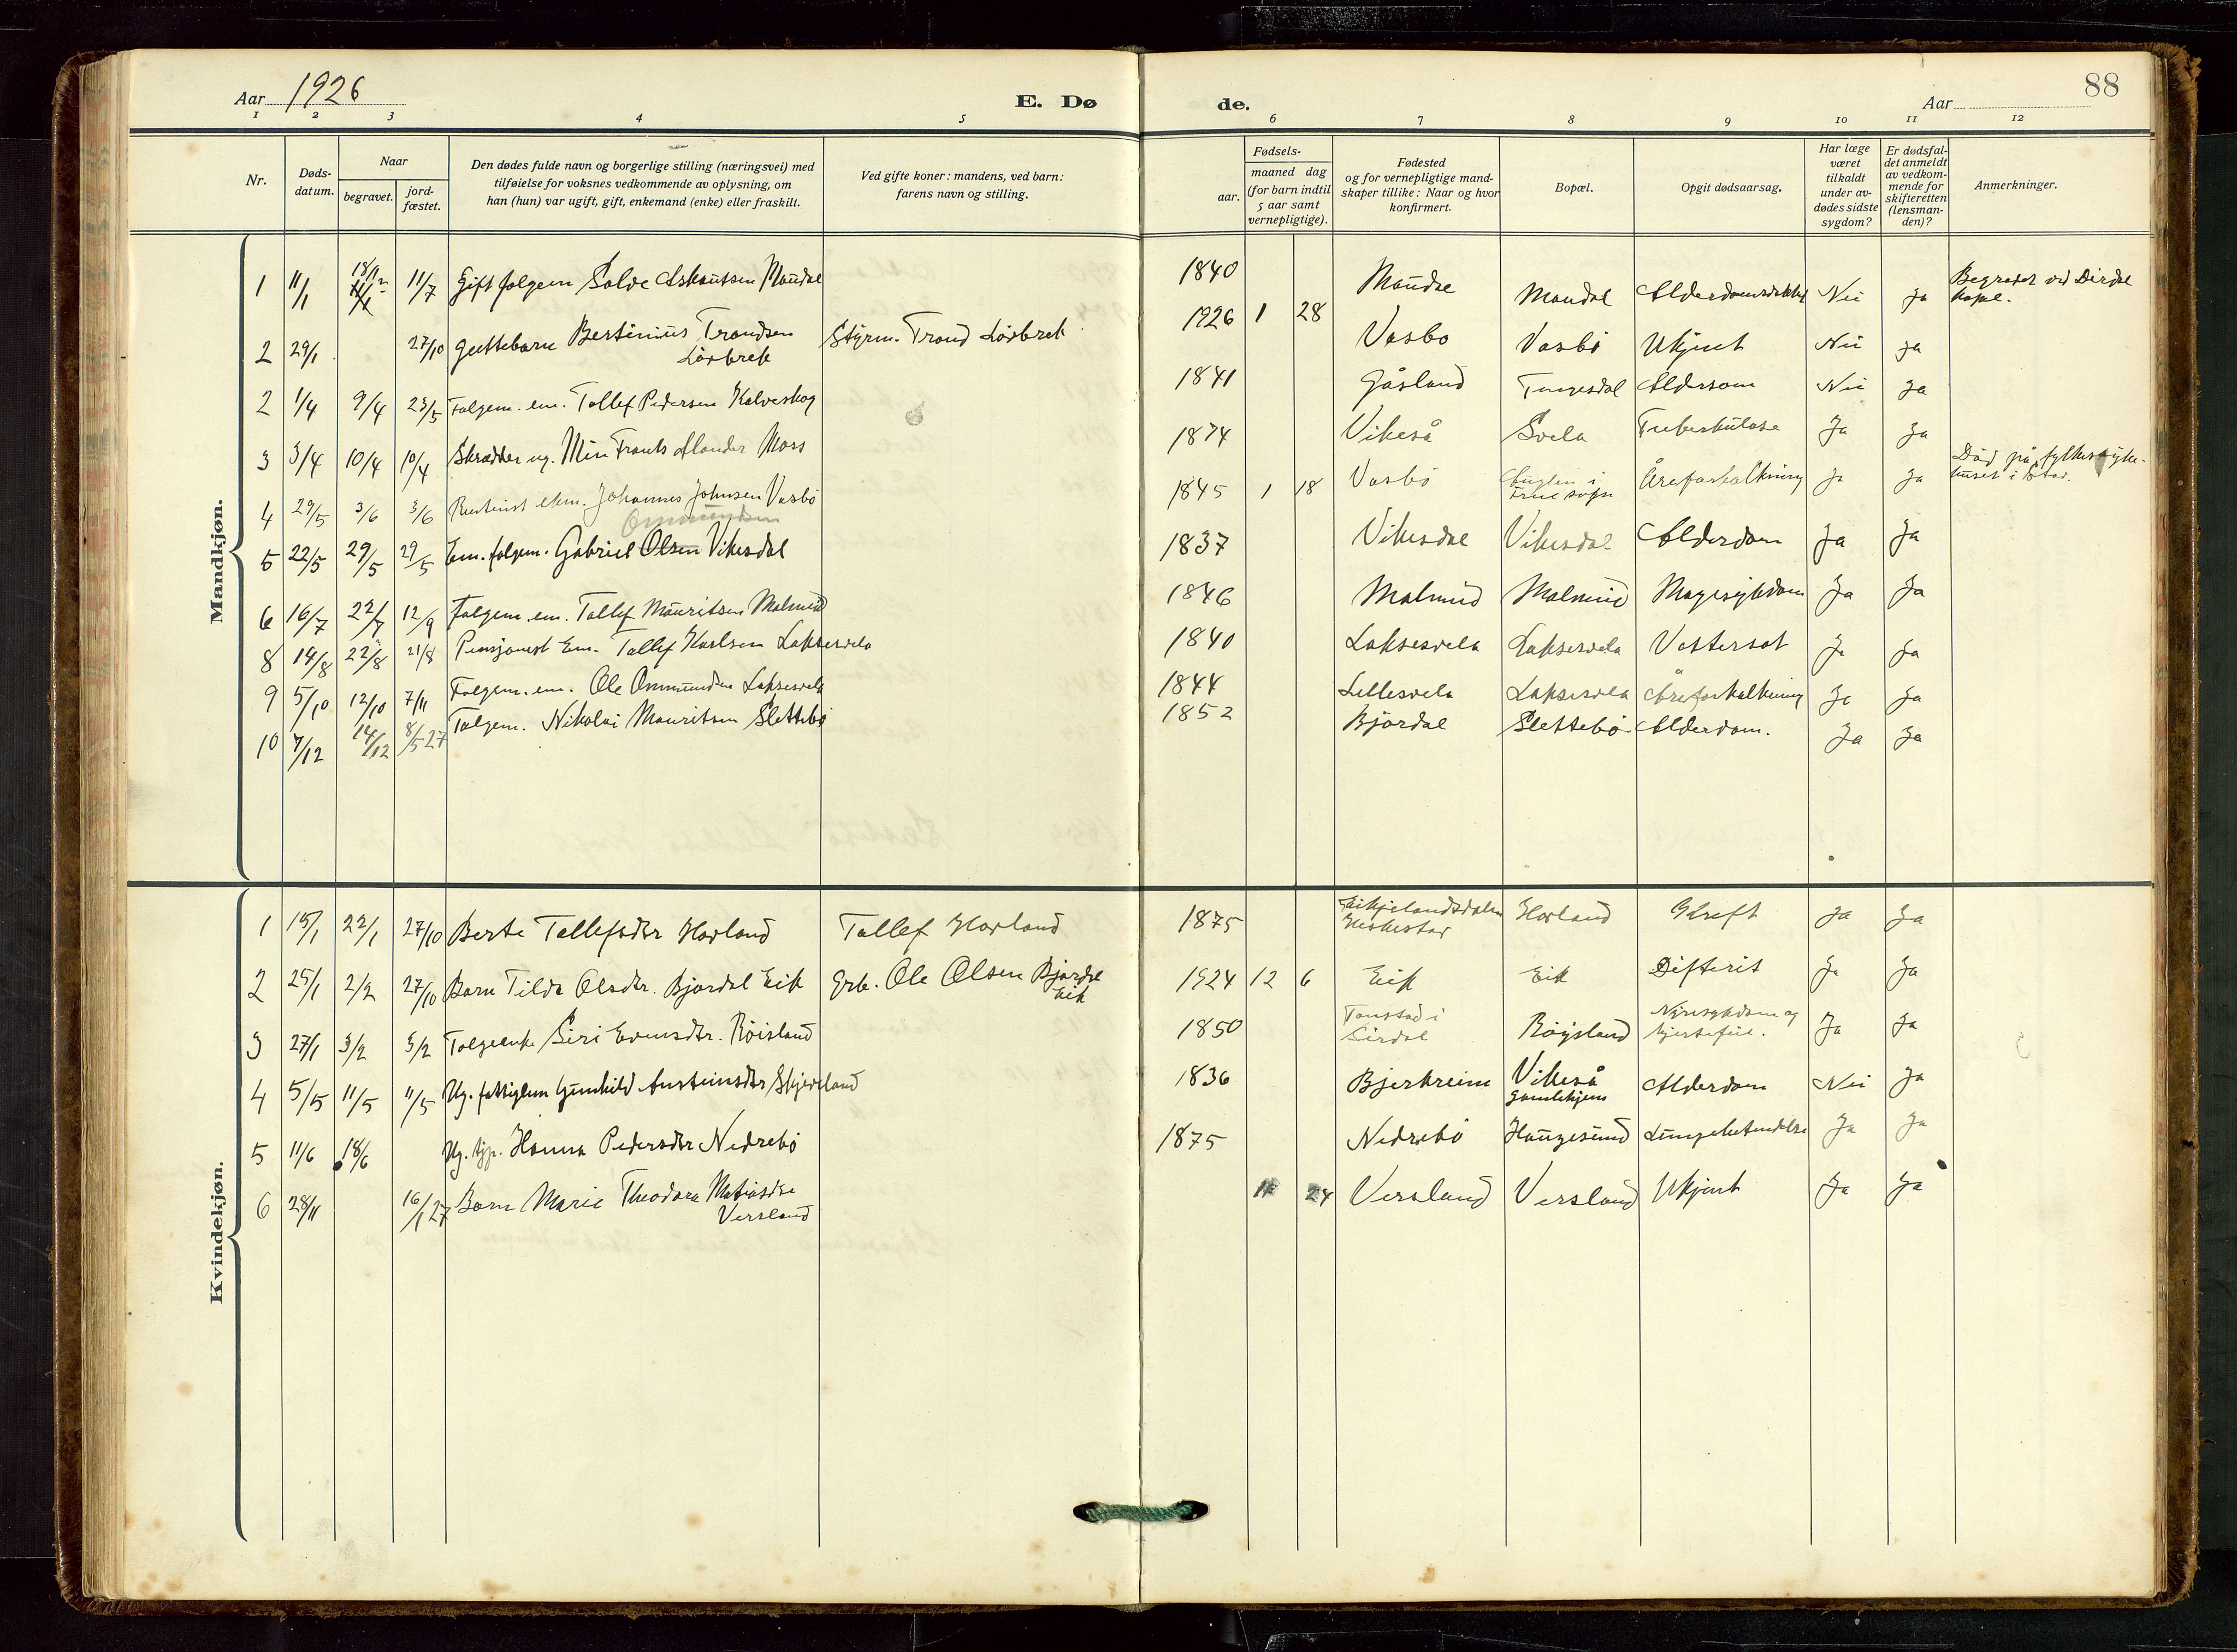 Aar 1926
E. Dø
de.
Aar
88
1 2 3 4 5 6 7 8 9 10 11 12
Nr.
Døds-
datum.
Naar
begravet.
jord-
fæstet.
Den dødes fulde navn og borgerlige stilling (næringsvei) med
tilføielse for voksnes vedkommende av oplysning, om
han (hun) var ugift, gift, enkemand (enke) eller fraskilt.
Ved gifte koner: mandens, ved barn:
farens navn og stilling.
Fødsels-
aar.
maaned dag
(for barn indtil
5 aar samt
vernepligtige).
Fødested
og for vernepligtige mand-
skaper tillike: Naar og hvor
konfirmert.
Bopæl.
Opgit dødsaarsag.
Har læge
været
tilkaldt
under av-
dødes sidste
sygdom?
Er dødsfal-
det anmeldt
av vedkom-
mende for
skifteretten
(lensman-
den)?
Anmerkninger.
Mandkjøn.
1 11/1 11/7 Gift folgem Salve Mandal 1840 Maudal Maudal Nei Ja Begravet ved Dirdal
kapel.
2 29/1 27/10 Guttebarn Bertinius Trondsen
Lörbrek Styrm. Trond Lörbrek 1926 1 28 Vasbo Vasbö Ukjent Nei Ja
2 1/4 9/4 23/5 Folgem. em. Tollef Pedersen Kalveskog 1841 Gåsland Tengesdal Alderdom Nei Ja
3 3/4 10/4 10/4 Skrædder ug. Frants Mass 1874 Vikeså Svela Tuberkulose Ja Ja
4 29/5 3/6 3/6 Johannes Johnsen Vasbö 1845 1 18 Vasbö Åreforkalkning Ja Ja Död på fylkessyke-
huset i Stav.
Ommundsen
5 22/5 29/5 29/5 Em. folgem. Gabriel Olsen Vikesdal 1837 Vikesdal Vikesdal Alderdom Ja Ja
6 16/7 22/7 12/9 Folgem. em. Tollef Mauritsen Malmei 1846 Malmei Malmei Mavesykdom Ja Ja
8 14/8 22/8 21/8 Pensjonist Em. Tollef Karlsen Laksesvela 1840 Laksesvela Laksesvela Vattersot Ja Ja
9 5/10 12/10 7/11 Folgem. em. Ole Ommundsen Laksesvela 1844 Lellesvela Laksesvela Åreforkalkning Ja Ja
10 7/12 14/12 8/5 27 Folgem. Nikolai Mauritsen Slettebö 1852 Bjordal Slettebö Alderdom. Ja Ja
Kvindekjøn.
1 15/1 22/1 27/10 Berte Tollefsdtr Hovland Tollef Hovland 1875 Eikjelandsdalen
Heskestad Hovland Kreft Ja Ja
2 25/1 2/2 27/10 Barn Tilda Olsdtr. Bjordal Eik Grb. Ole Olsen Bjordal
Eik 1924 12 6 Eik Eik Difterit Ja Ja
3 27/1 3/2 3/2 Folgeenke Siri Evensdtr. Röisland 1850 Tonstad i
Sirdal Röysland Nyresykdom og
hjertefeil. Ja Ja
4 5/5 11/5 11/5 Ug. fattiglem Gunhild Austeinsdtr Skjeveland 1836 Bjerkreim Vikeså
Gamlehjem Alderdom Nei Ja
5 11/6 18/6 Ug. tjp. Hanna Pedersdtr Nedrebö 1875 Nedrebö Haugesund Lungebetendelse Ja Ja
6 28/11 16/1 27 Barn Marie Theodora Matiasdtr
Versland 11 24 Versland Versland Ukjent Ja Ja